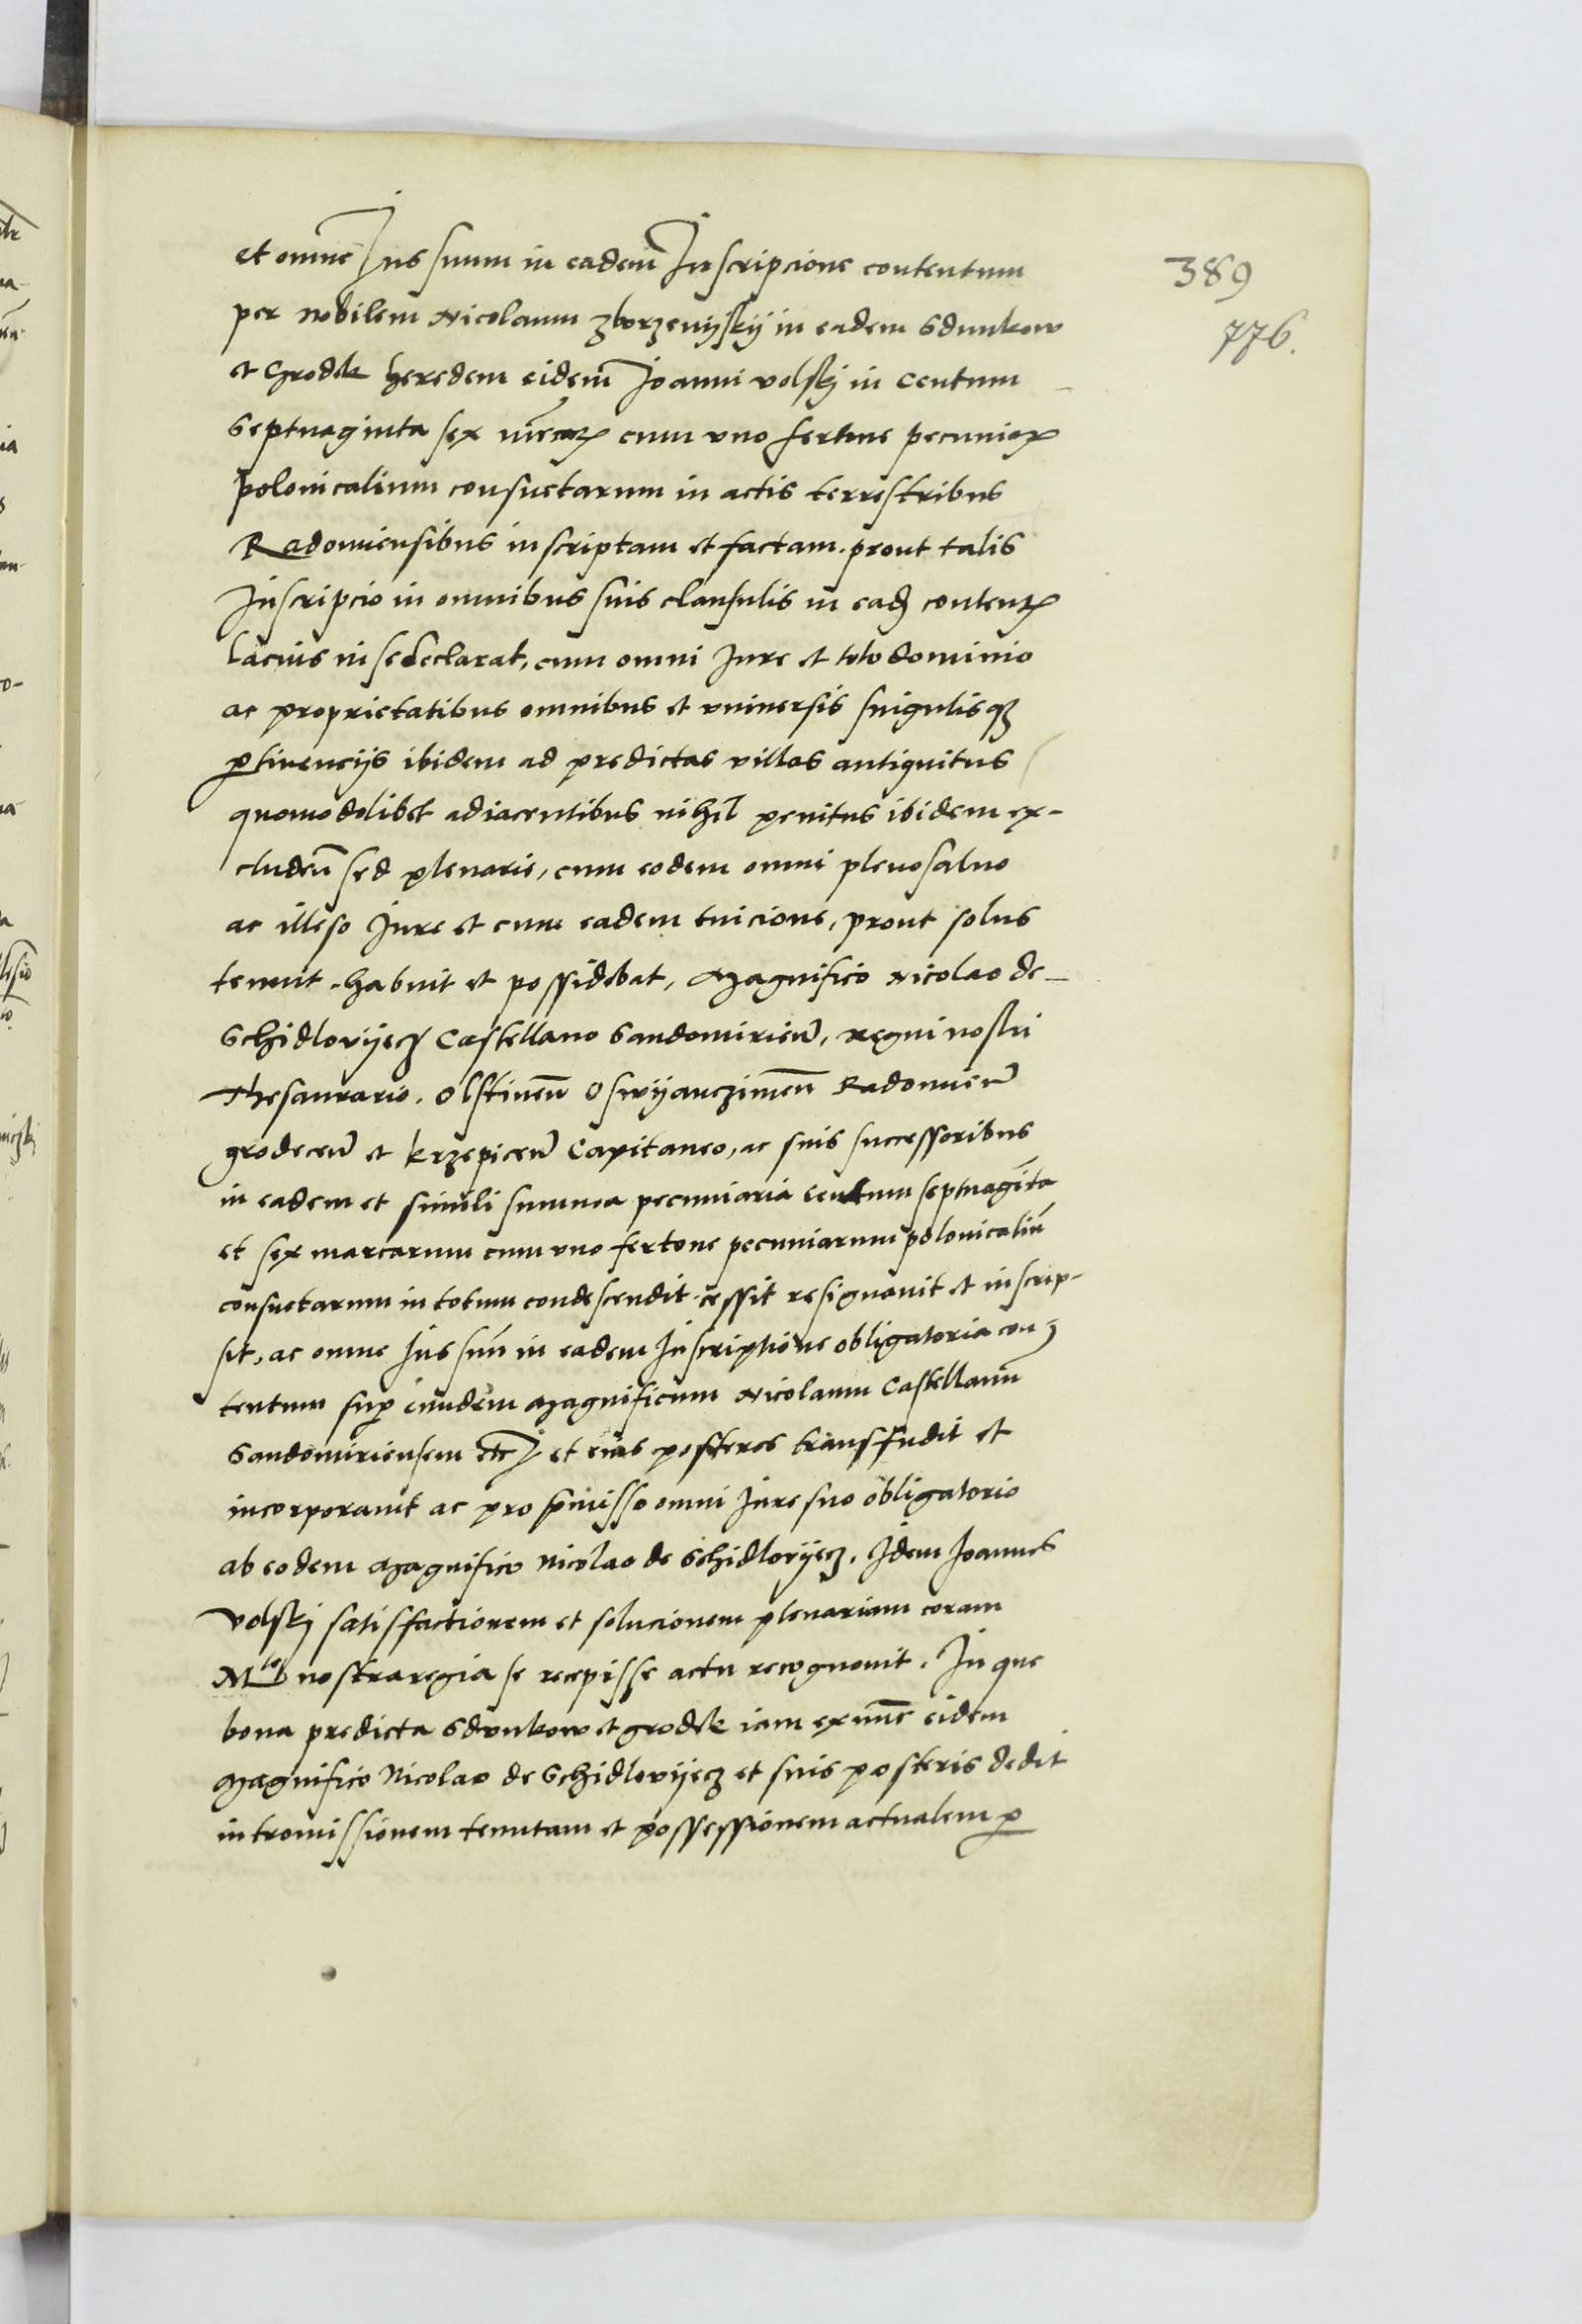 et omne Jus suum in eadem Inscripcione contentum
389
per nobilem Nicolaum Zborzenijskij in eadem Sdunkow
776.
et Grodek heredem eidem Joanni volskj in Centum
Septuaginta sex mrcarꝝ cum vno fertone pecuniarꝝ
polonicalium consuetarum in actis terrestribus
Radomiensibus inscriptam et factam. prout talis
Inscripcio in omnibus suis clausulis in eadꝫ contentꝭ
lacius in se declarat, cum omni Jure et toto dominio
ac proprietatibus omnibus et vniuersis singulisqꝫ
ꝑtinencijs ibidem ad predictas villas antiquitus
quomodolibet adiacentibus nihil penitus ibidem ex-
cludeñ sed plenarie, cum eodem omni pleno saluo
ac illeso Jure et cum eadem tuicione, prout solus
tenuit . habuit et possidebat, Magnifico Nicolao de
Schidlovijecz Castellano Sandomirieñ, regni nostri
Thesaurario. Olstineñ Oswijanczimeñ Radomieñ
grodeceñ et krzepiceñ Capitaneo, ac suis successoribus
in eadem et simili summa pecuniaria centum septuagīta
et sex marcarum cum vno fertone pecuniarum polonicaliū
consuetarum in totum condescendit. cessit resignauit et inscrip-
sit, ac omne Jus suū in eadem Inscriptione obligatoria con
tentum suꝑ eundem Magnificum Nicolaum Castellanū
Sandomiriensem etc et eius posteros transfudit et
incorporauit ac pro p̄misso omni Jure suo obligatorio
ab eodem Magnifico Nicolao de Schidlovijecz. Idem Joannes
Volskj satisfactionem et solucionem plenariam coram
Mte nostra regia se recepisse actu recognouit. In que
bona predicta Sdunkow et grodek iam ex nūc eidem
Magnifico Nicolao de Schidlovijecz et suis posteris dedit
intromissionem tenutam et possessionem actualem ꝑ